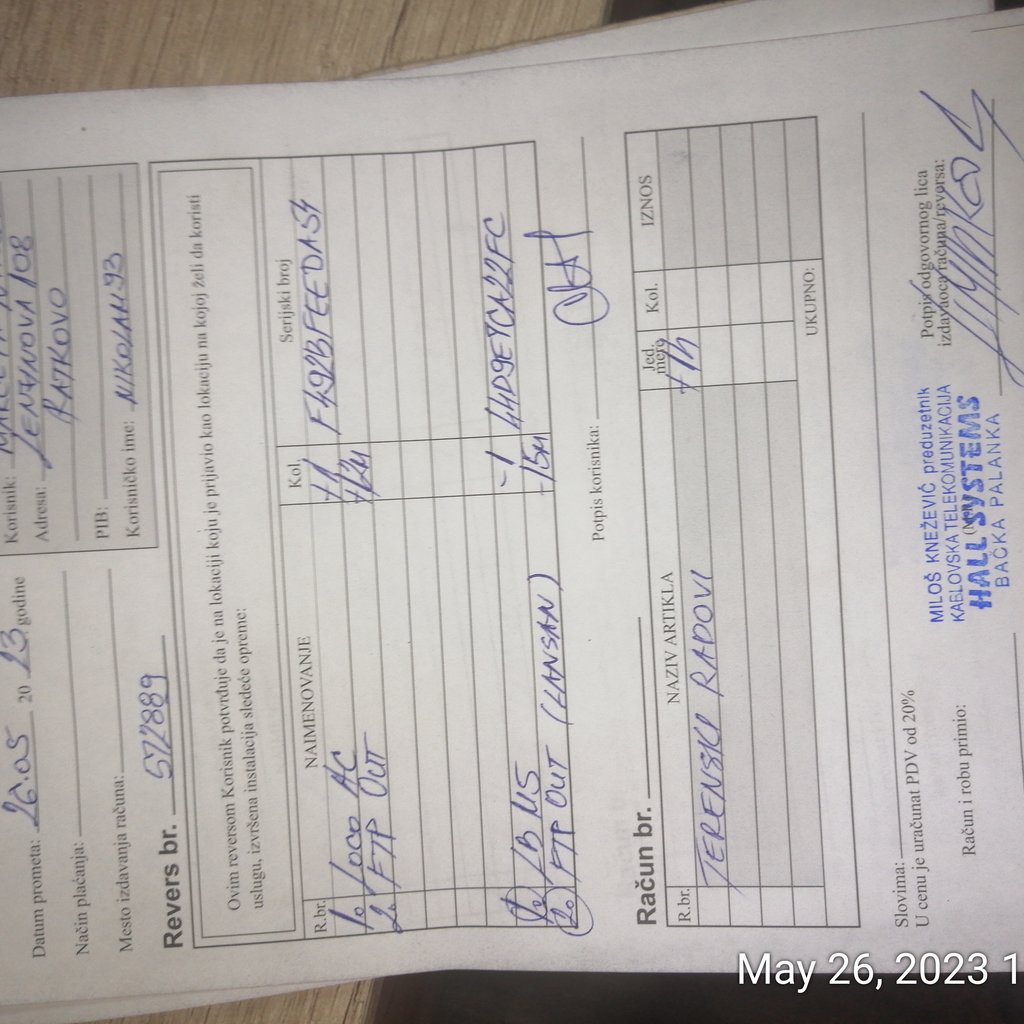 Datum prometa: 26.05 20 23 godine
Način plaćanja:
Mesto izdavanja računa:
Korisnik:
Adresa: LENJINOVA 108
RATKOVO
PIB:
Korisničko ime: NIKOLAM93
Revers br. 572889
Ovim reversom Korisnik potvrđuje da je na lokaciji koju je prijavio kao lokaciju na kojoj želi da koristi
uslugu, izvršena instalacija sledeće opreme:
R.br. NAIMENOVANJE Kol. Serijski broj
1. LOCO AC +1 F492BFEEDA54
2. FTP OUT
1. LB M5 -1
2. FTP OUT -15m
Potpis korisnika:
Račun br.
R.br. NAZIV ARTIKLA Jed. mere Kol. IZNOS
TERENSKI RADOVI +1h
UKUPNO:
Slovima:
U cenu je uračunat PDV od 20%
Račun i robu primio:
Potpis odgovornog lica
izdavaoca računa/reversa:
MILOŠ KNEŽEVIĆ preduzetnik
KABLOVSKA TELEKOMUNIKACIJA
HALL SYSTEMS
BAČKA PALANKA
May 26, 2023 1